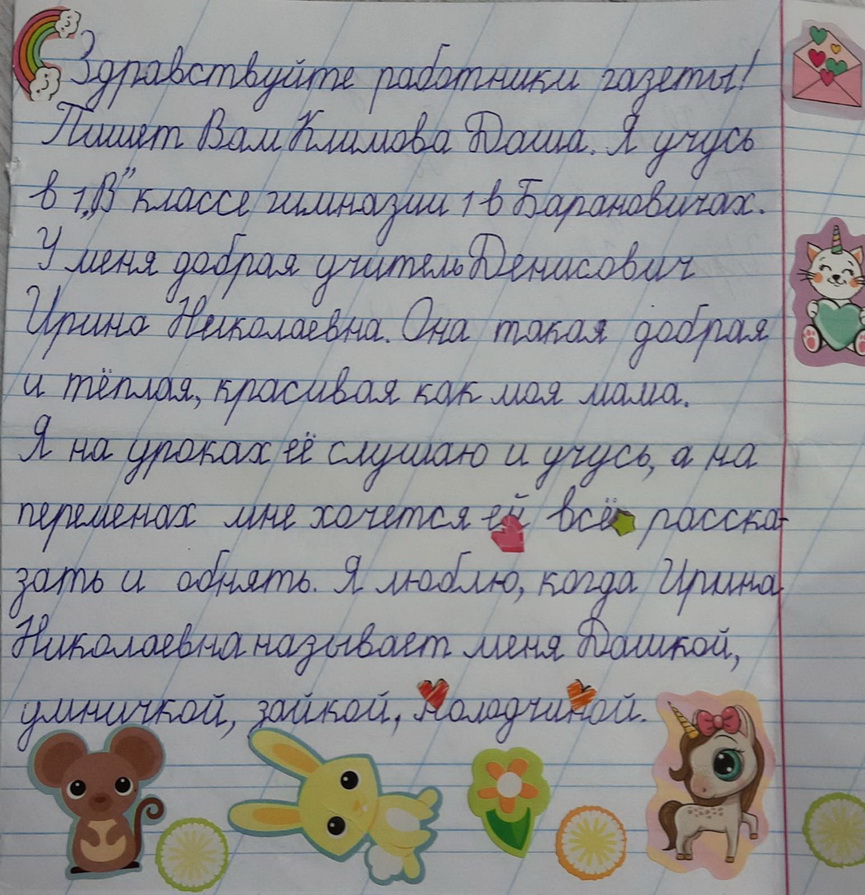 Здравствуйте работники газеты!
Пишет Вам Климова Даша. Я учусь
в 1 „В” классе гимназии 1 в Барановичах.
У меня добрая учитель Денисович
Ирина Николаевна. Она такая добрая
и тёплая, красивая как моя мама.
Я на уроках её слушаю и учусь, а на
переменах мне хочется ей всё расска-
зать и обнять. Я люблю, когда Ирина
Николаевна называет меня Дашкой,
умничкой, зайкой, молодчиной.